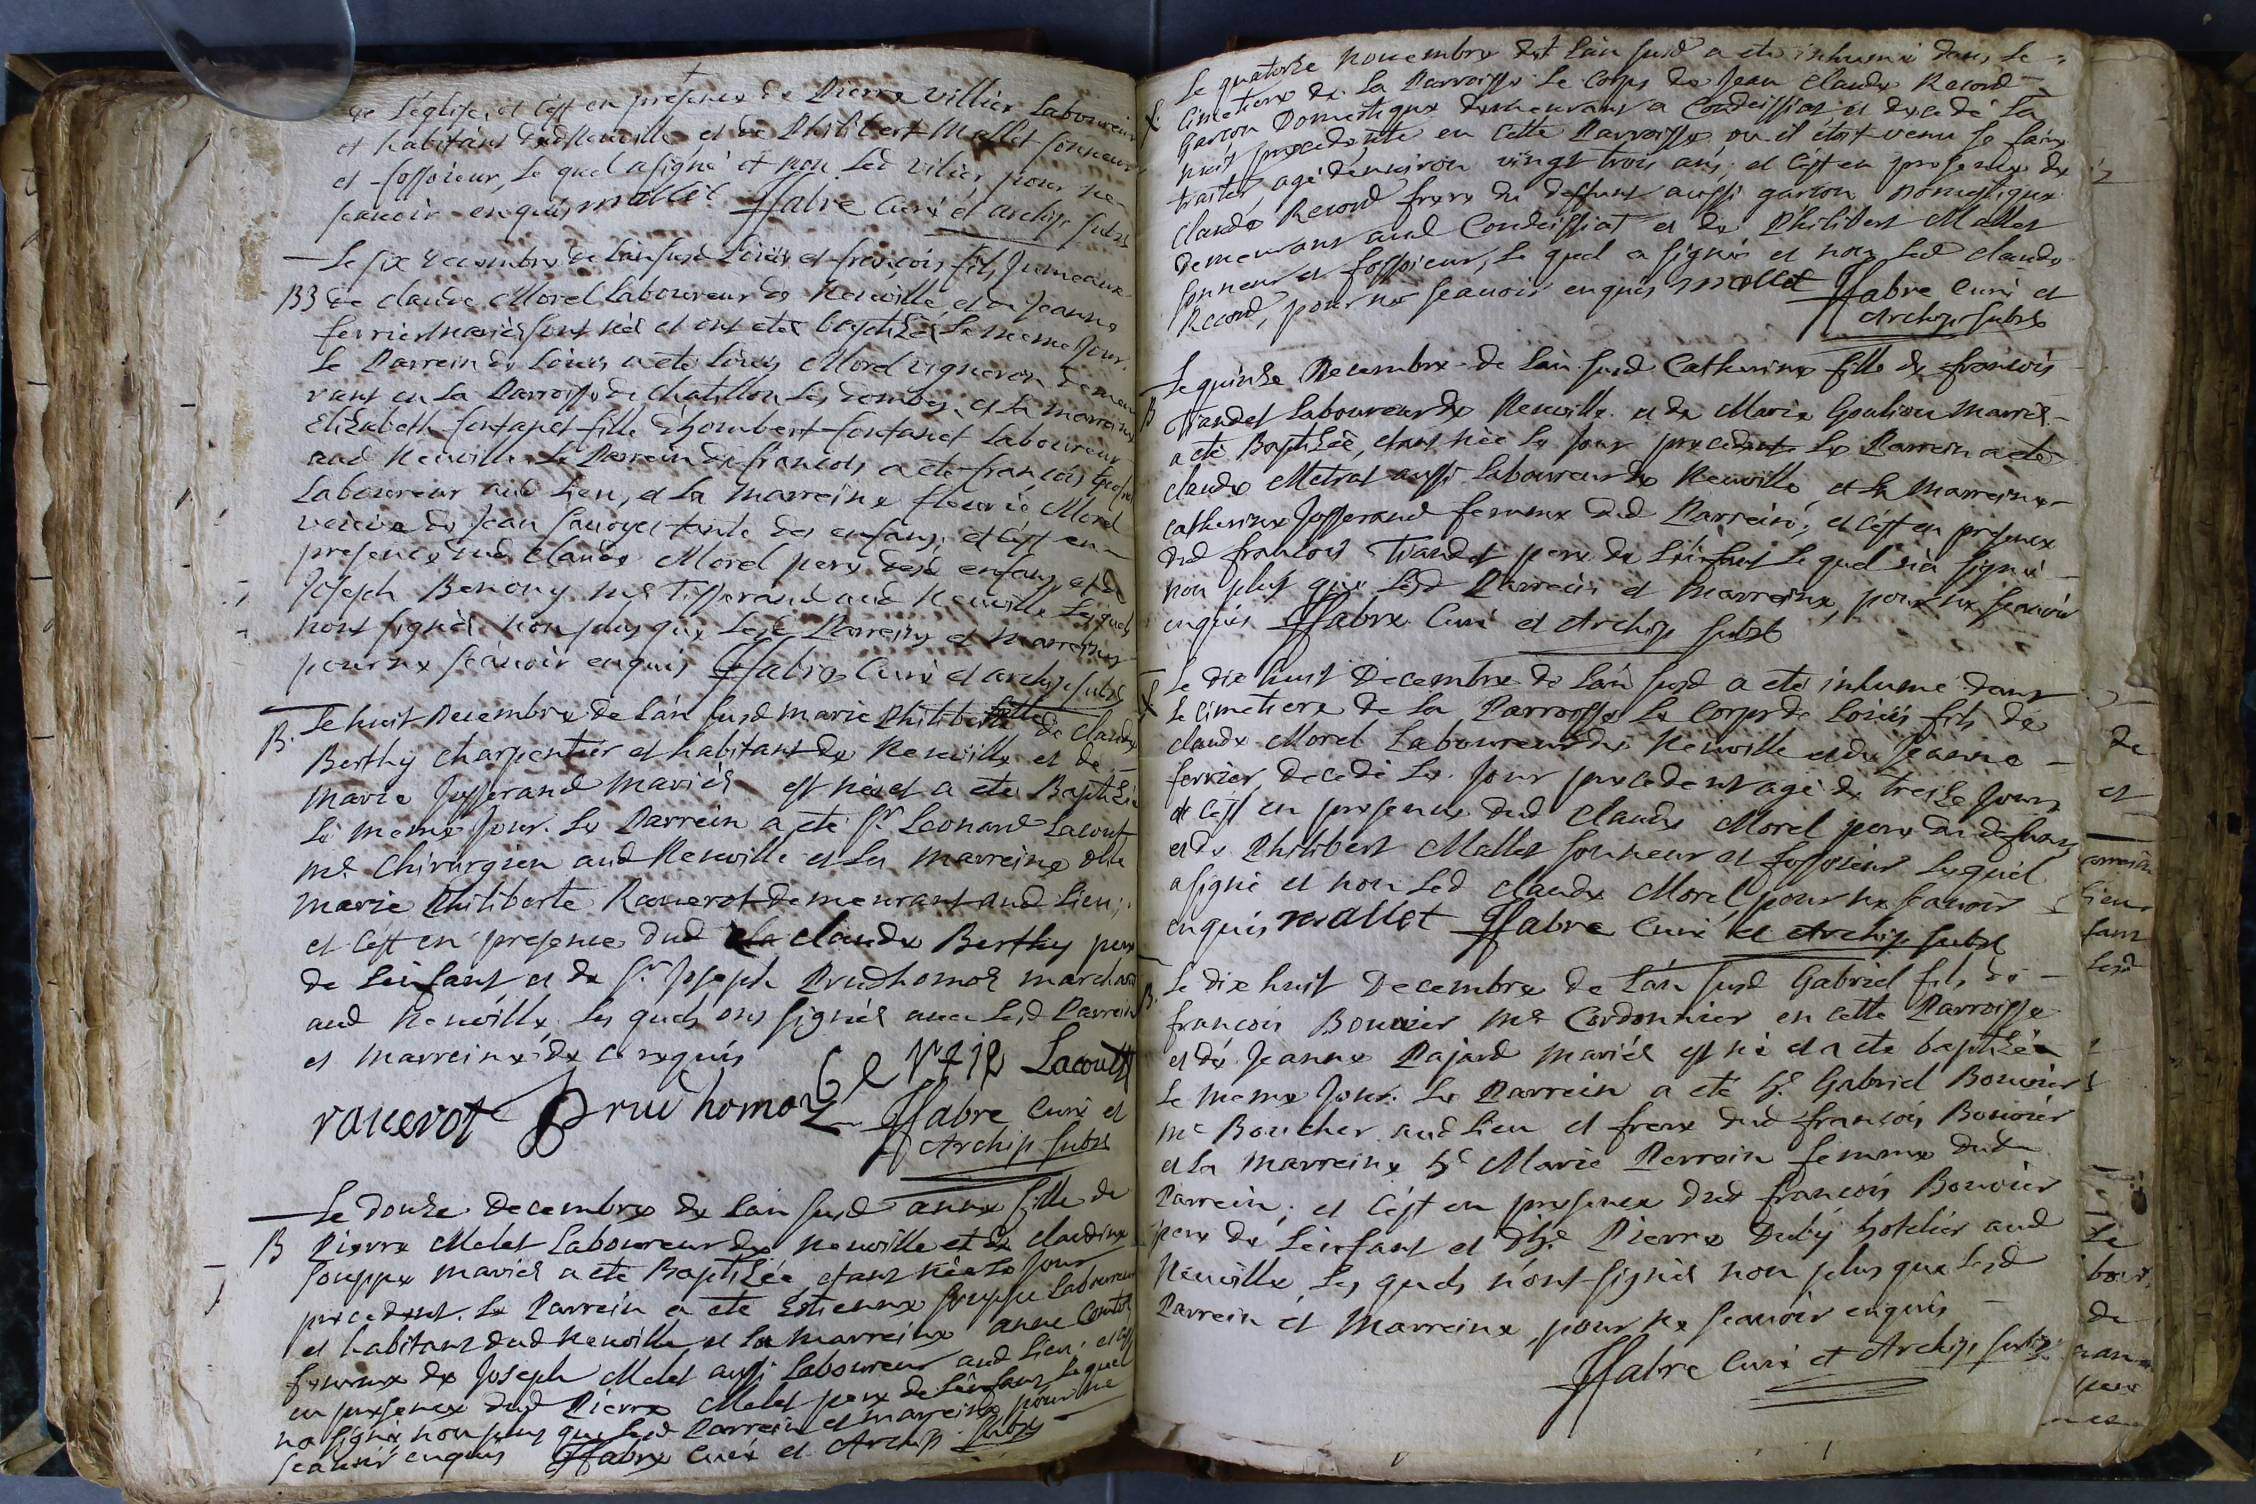 de l'église, et c'est en presence de Pierre villier Laboureur
et habitant dud Neuville et de Philibert Mallet sonneur
et fossoieur, le quel a signé et non led vilier pour ne
scauoir enquis mallet ffabre Curé et archip subs
Le six Decembre de l'an susd Loüis et francois fils Jumeaux
BB de claude Morel Laboureur de Neuville, et de Jeanne
ferrier mariés sont nés et ont etés baptisés le meme Jour.
Le Parrein de Loüis a ete Loüis Morel vigneron demeu
rant en La Parroisse de chatillon Les dombes, et la marreine
Elizabeth fontanet fille d'homber fontanet Laboureur
aud Neuville. Le Parrein de francois a ete francois
Laboureur aud Lieu, et la marreine fleurie Morel
veuve de Jean sauoyet tante des enfans, et c'est en
presence dud Claude Morel pere desd enfans, et de
Joseph Benony me Tisserand aud Neuville Lesquels
n'ont signés non plus que Lesd Parreins et marreines
pour ne scauoir enquis ffabre Curé et archip subs
B. Le huit Decembre de l'an susd marie Philiberte fille de Claude
Berthy charpentier et habitant de Neuville et de
marie Josserand mariés est née et a ete Baptisée
Le meme Jour. Le Parrein a ete Sr Leonard Lacoult
me Chirurgien aud Neuville et la marreine dlle
marie Philiberte Rauerot demeurant aud Lieu;
et c'est en presence dud claude Berthy pere
de L'enfant et de Sr Joseph Prudhomos marchand
aud Neuville, Les quels ont signés auec Lesd Parrein
et marreine de ce requis
Lacoult
rauerot Prudhomos ffabre Curé et
Archip subs
Le douze decembre de l'an susd anne fille de
B Pierre Melet Laboureur de Neuville et de claudine
souppe mariés a ete Baptisée etant née le Jour
precedent. Le Parrein a ete Estienne souppe Laboureur
et habitant dud Neuville et la marreine anne
femme de Joseph Melet aussi Laboureur aud Lieu; et c'est
en presence dud Pierre Melet pere de L'enfant Lequel
n'a signé non plus que Lesd Parrein et marreine pour ne
scauoir enquis ffabre Curé et Archip subs
Le quatorze nouembre de l'an susd a ete inhumé dans le
cimetiere de la Parroisse le corps de Jean Claude Recond
garcon Domestique demeurant a Condeissiat et decedé la
nuit precedente en cette Parroisse ou il étoit venu se faire
traiter, agé d'enuiron vingt trois ans; et c'est en presence de
claude Recond frere du deffunt aussi garcon Domestique
demeurant aud Condeissiat et de Philibert Mallet
sonneur et fossoieur, le quel a signé et non led claude
Recond, pour ne scauoir enquis mallet ffabre Curé et
Archip subs
Le quinze Decembre de l'an susd Catherine fille de francois
B Trandet Laboureur de Neuville et de Marie Goulion mariés
a ete Baptisée, etant née le Jour precedent. Le Parrein a ete
claude Metrat aussi Laboureur de Neuville et la marreine
catherine Josserand femme dud Parrein; et c'est en presence
dud francois Trandet pere de L'enfant Le quel n'a signé
non plus que Lesd Parrein et marreine, pour ne scauoir
enquis ffabre Curé et Archip subs
Le dix huit Decembre de L'an susd a eté inhumé dans
le cimetiere de la Parroisse le corps de Loüis fils de
claude Morel Laboureur de Neuville et de Jeanne
ferrier decedé Le Jour precedent agé de treize Jours
et c'est en presence dud Claude Morel pere du defunt
et de Philibert Mallet sonneur et fossoieur Lequel
a signé et non Led claude Morel, pour ne scauoir
enquis mallet ffabre Curé et Archip subs
Le dix huit Decembre de L'an susd Gabriel fils de
B. francois Bouuier me Cordonnier en cette Parroisse
et de Jeanne Pajard mariés est né et a ete baptisé
Le meme Jour. Le Parrein a ete he Gabriel Bouuier
me Boucher aud Lieu et frere dud francois Bouuier
et la marreine he Marie Perrein femme dud
Parrein; et c'est en presence dud francois Bouuier
pere de L'enfant et d'he Pierre Duby hotelier aud
Neuville, Les quels n'ont signés non plus que Lesd
Parrein et Marreine, pour ne scauoir enquis
ffabre Curé et Archip subs
de
et
Lieu
fant
Lesd
Le
de